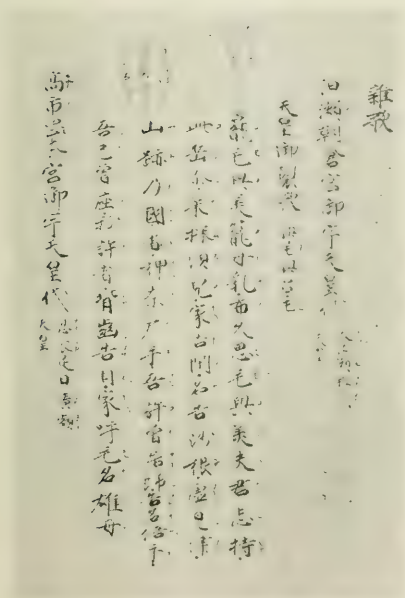 雜歌
泊瀬朝倉宮御宇天皇代
天皇御製歌
籠毛與美籠母乳布久思毛與美夫君志持
此岳尓菜採須兒家吉閑名告沙根虚見津
山跡乃國者押奈戸手吾許曽居師告名倍手
吾己曽座我許者背齒告目家呼毛名雄母
高市岡本宮御宇天皇代 息長足日廣額
天皇